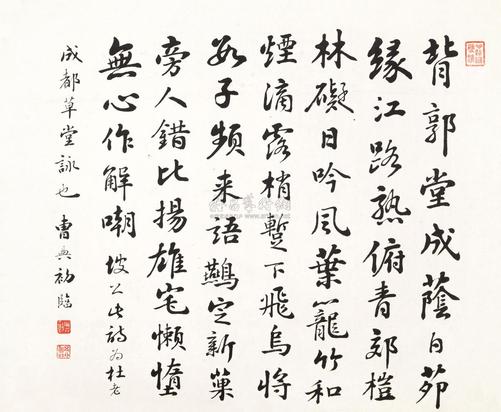 背郭堂成蔭白茆
緣江路熟俯青郊榿
林礙日吟風葉籠竹和
煙滴露梢蹔下飛烏將
數子頻来語鷰定新巢
旁人錯比揚雄宅懶惰
無心作解嘲 坡公此詩為杜老
成都草堂詠也 曹典初臨